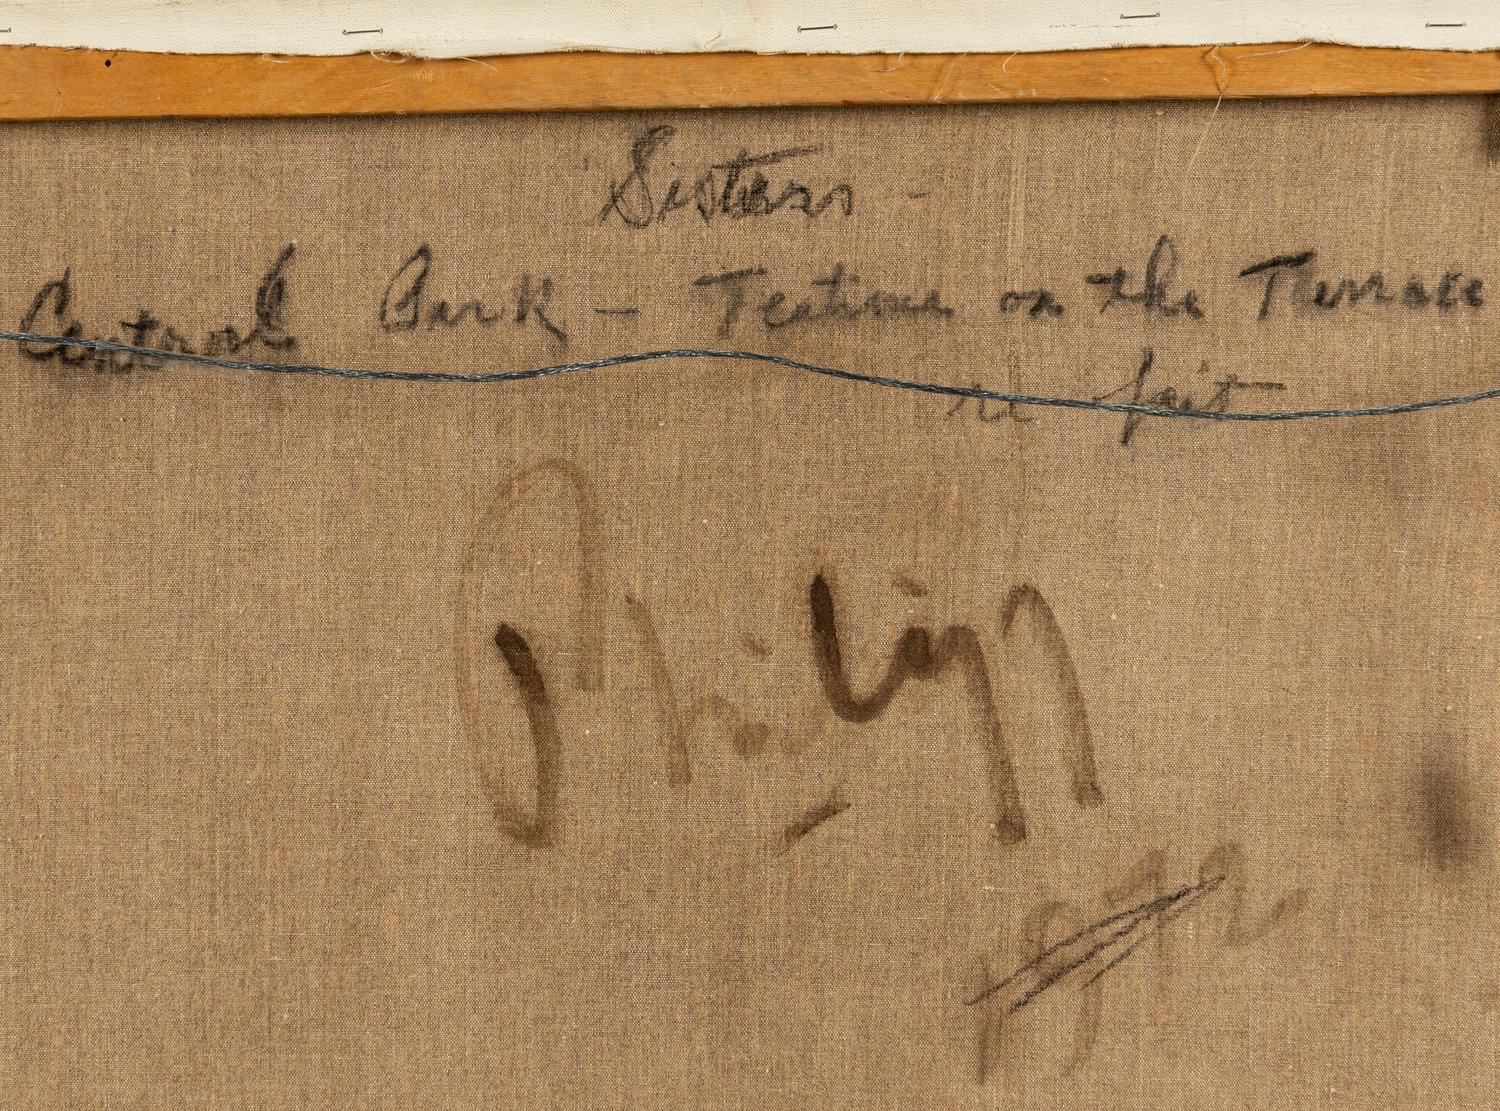 Sisters -
Central Park - Teatime on the Terrace
re fait
Philipp
1972